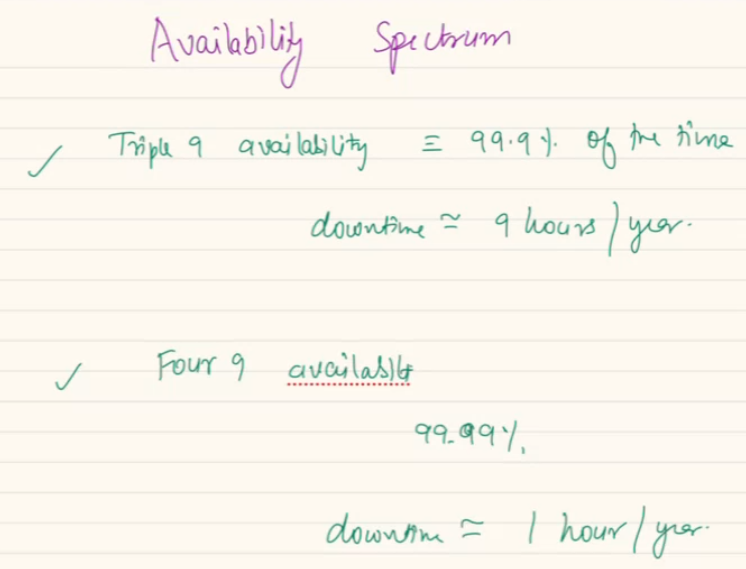 Availability Spectrum
Triple 9 availability ≡ 99.9% of the time
downtime ≃ 9 hours / year.
Four 9 availability
99.99%.
downtime ≃ 1 hour / year.